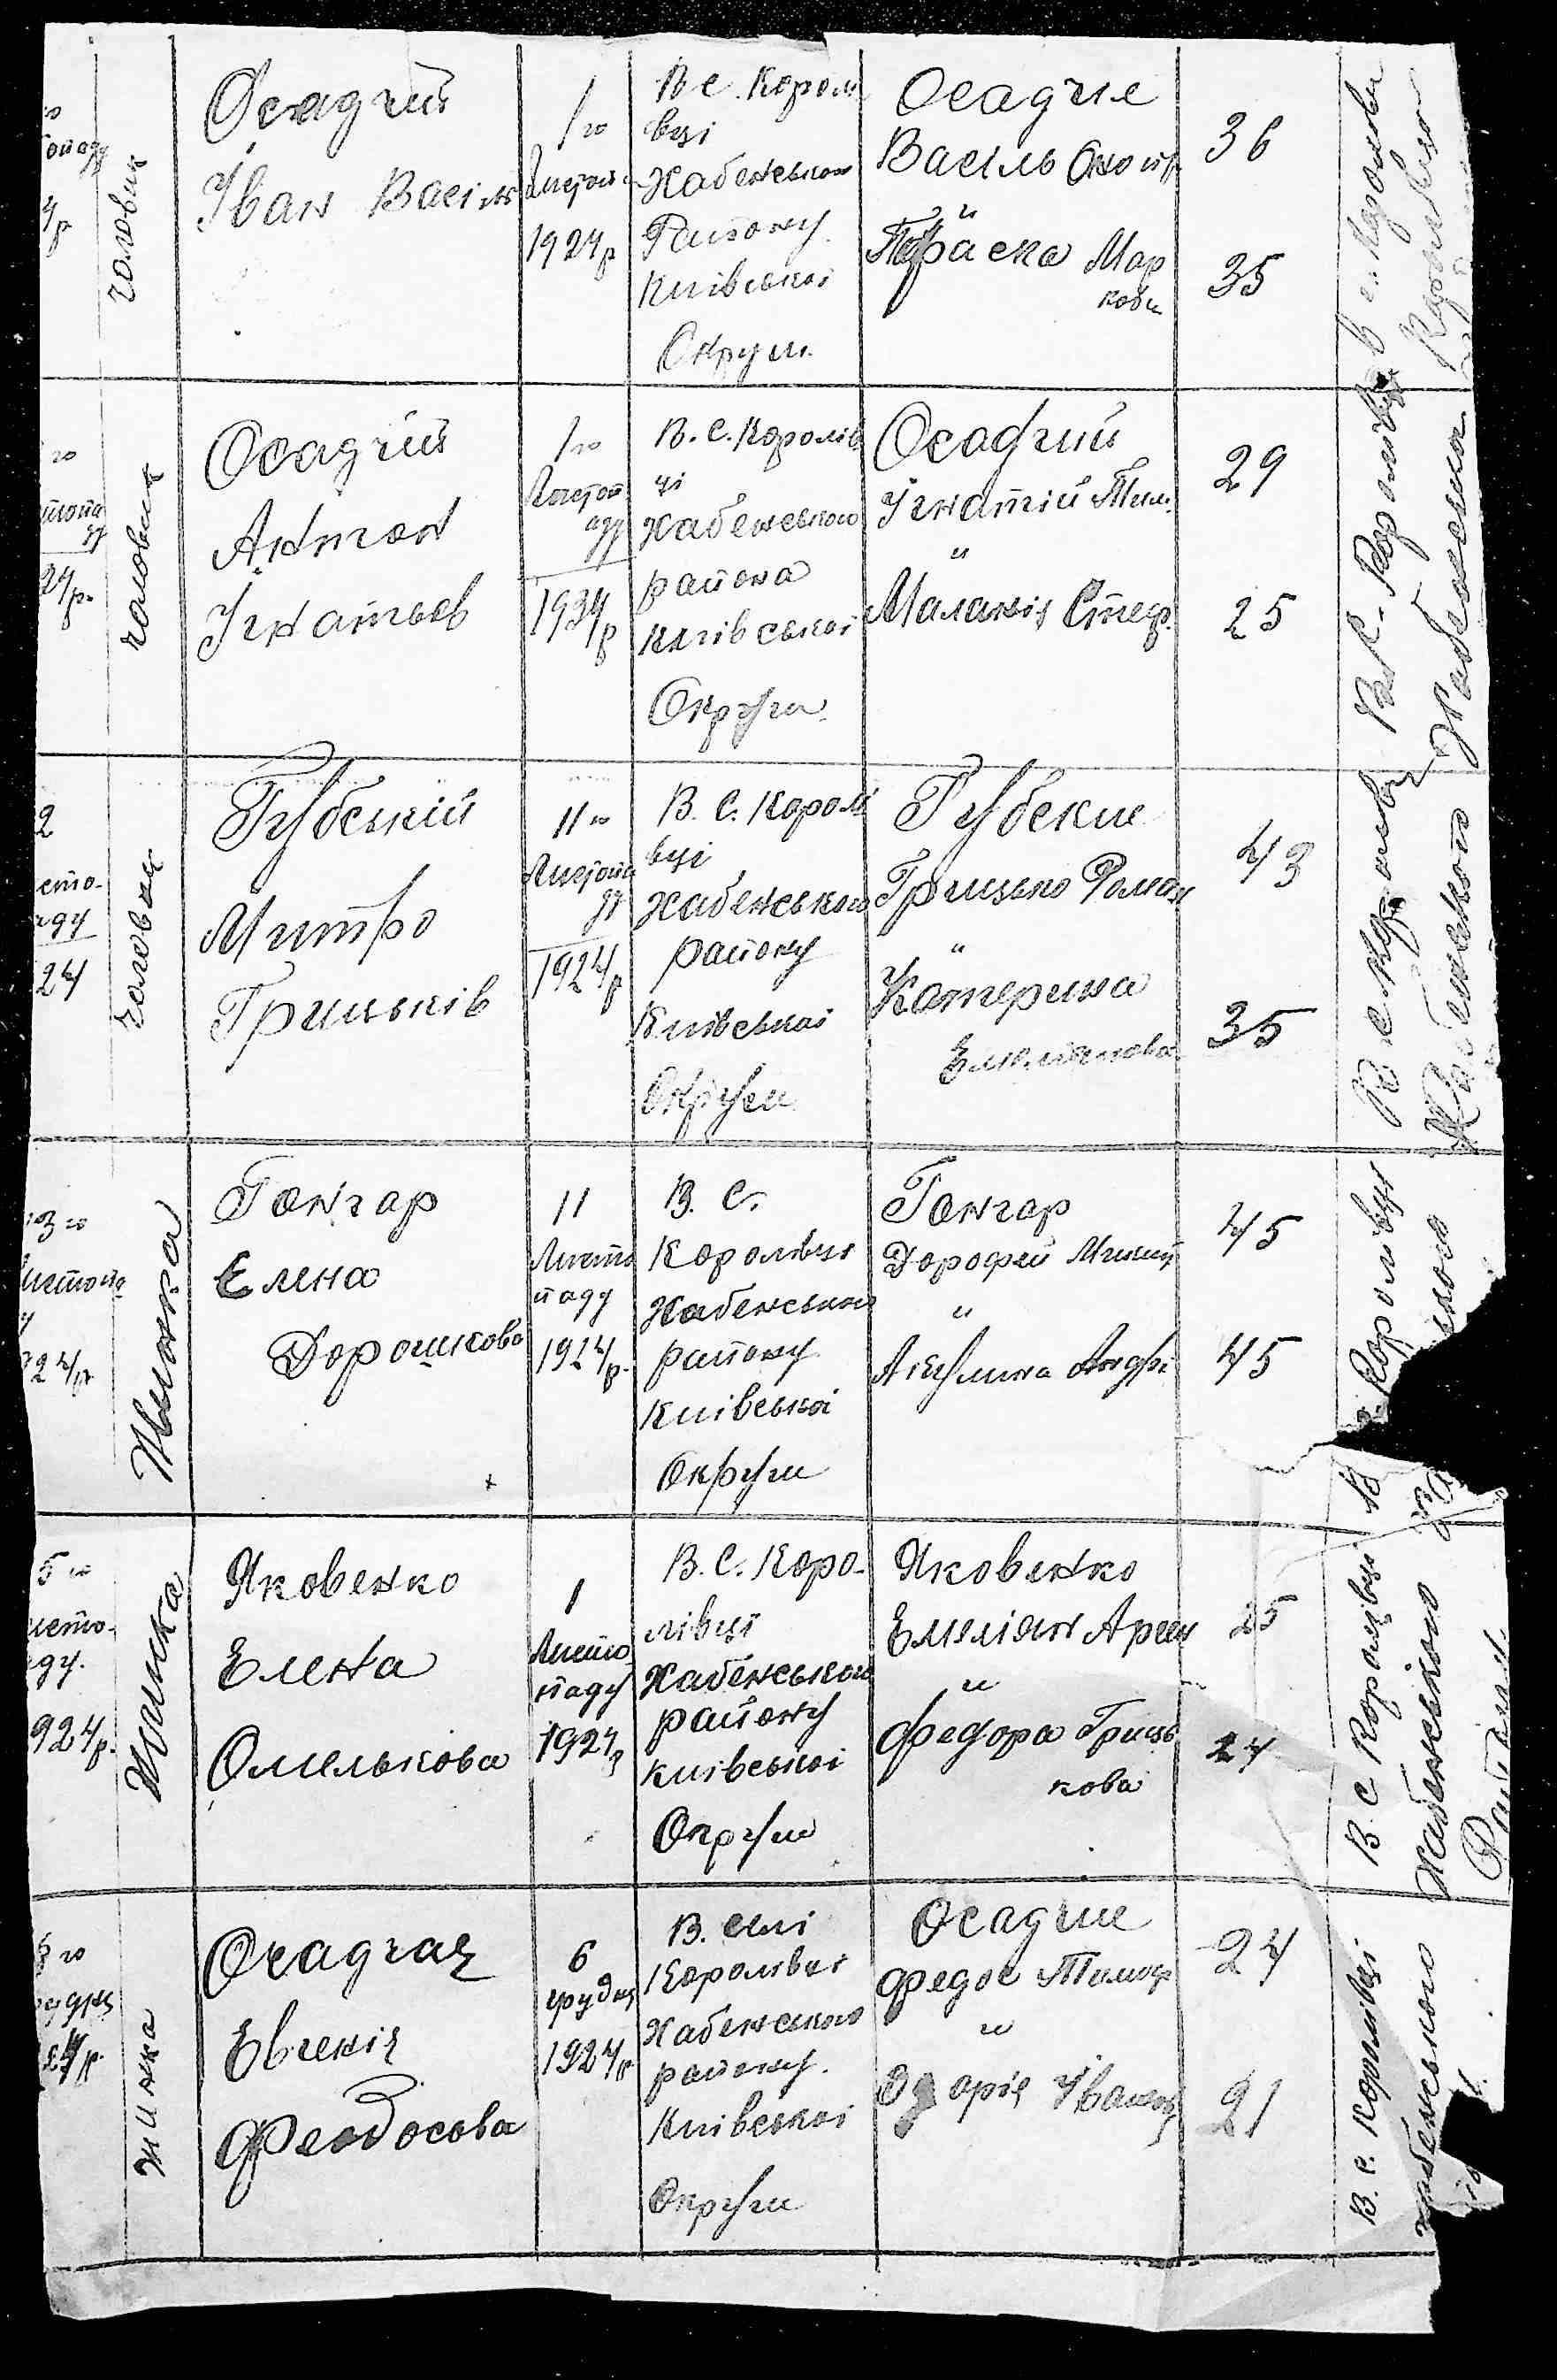 чоловик
Осадчий
Іван Василь
1го
1924р
В с. Королі
вці
Хабенського
Району
Київської
Округи
Осадчие
Василь
Параска Мар
кова
36
35
чоловик
Осадчий
Антон
Ігнатьев
1го
Листоп
аду
1934р
В. С. Королів
ці
Хабенського
района
Київської
Округи
Осадчий
Ігнатій Тим.
"
Маланія Стеф.
29
25
В С. Королівці
Хабенського
2
сто-
аду
24
чоловик
Губський
Митро
Грицьків
11го
Листопа
ду
1924р
В. С. Королі
вці
Хабенського
району
Київської
Округи
Губские
Грицько Роман
"
Катерина
Емелянова
43
35
Жинка
Гончар
Елена
Дорошкова
11
Листо
паду
1924р.
В. С.
Королівці
Хабенського
району
Київської
Округи
Гончар
Дорофей Микит
"
Акулина Андрі
45
45
Королівці
5го
исто-
ду.
924р.
Жинка
Яковенко
Елена
Омелькова
1
Листо
паду
1924р
В. С. Коро-
лівці
Хабенського
району
Київської
Округи
Яковенко
Емеліян Арсен
"
Федора Гриць
кова
25
24
В. С Королівці
Хабенського
жинка
Осадчая
Евгенія
Феодосова
6
грудня
1924р
В. селі
Королівці
Хабенського
району.
Київської
Округи
Осадчие
Федос Тимоф
"
Одарія Іванов
24
21
В. с. Королівці
Хабенського